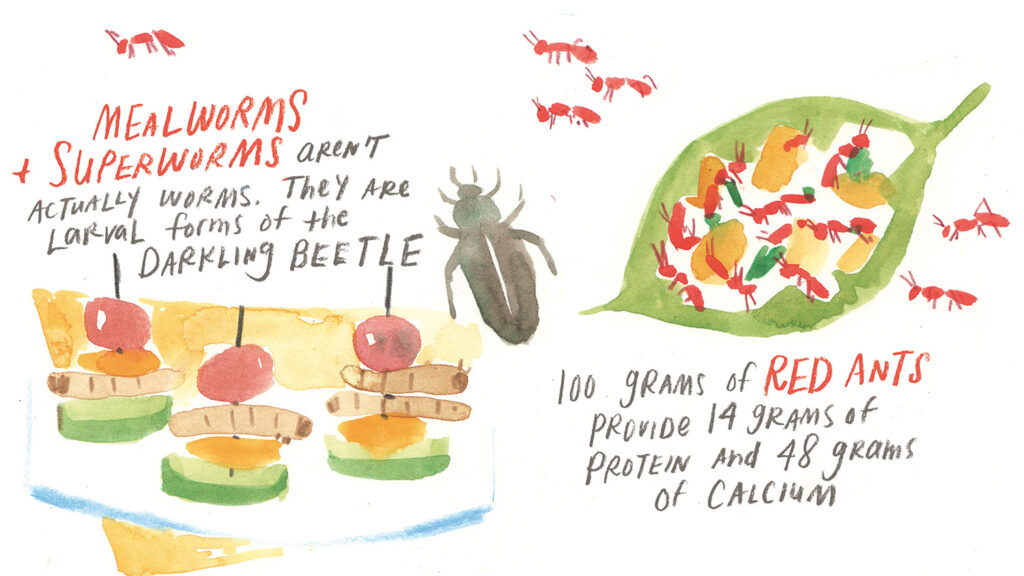 MEALWORMS
+ SUPERWORMS AREN'T
ACTUALLY WORMS. THEY ARE
LARVAL forms of the
DARKLING BEETLE
100 grams of RED ANTS
PROVIDE 14 GRAMS of
PROTEIN and 48 grams
of CALCIUM